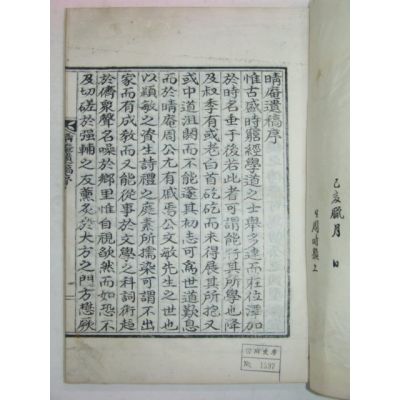 晴庵遺稿序
惟古盛時窮經學道之士擧多達而在位澤加
於時名垂于後若此者可謂能行其所學也降
及叔季有或老白首矻矻而未得展其所抱又
或中道沮閼而不能遂其初志可爲世道歎息
而於晴庵周公尤有慼焉公文敏先生之世也
以穎敏之資生詩禮之庭素所擩染可謂不出
家而有成敎而又能從事於文學之科詞術超
於儕衆聲名噪於鄕里惟自視欿然而如恐不
及切磋於强輔之友薰炙於大方之門方懋厥
晴庵遺稿序
己亥臘月 日
周時
上
No. 1537